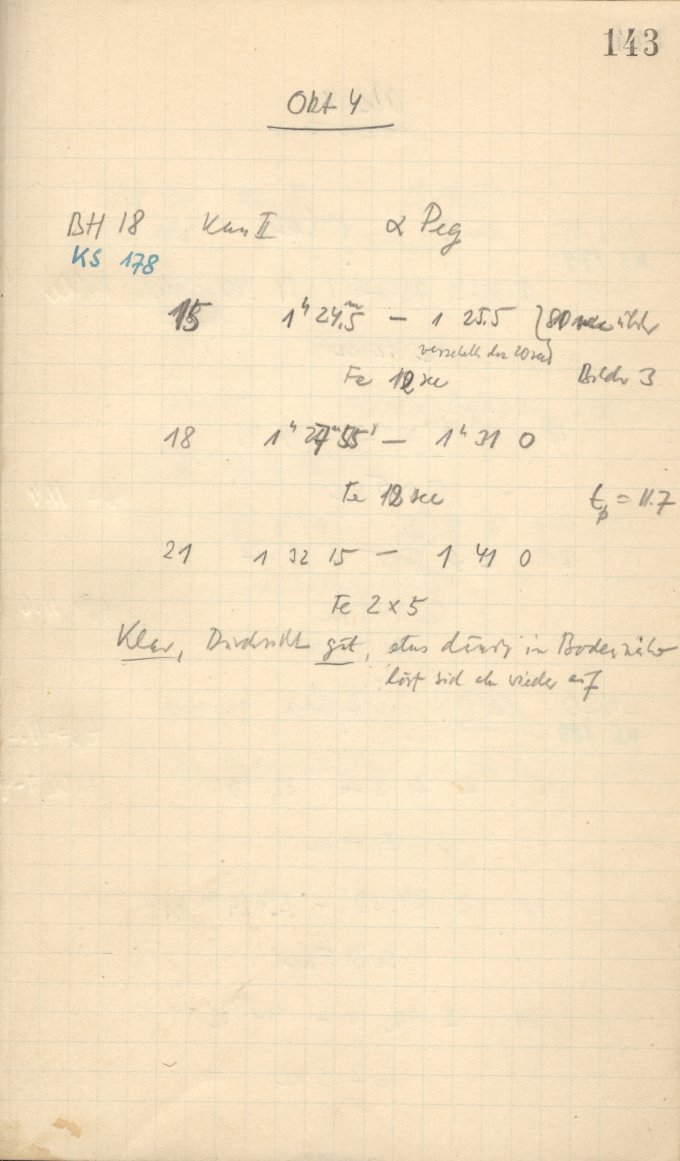 143
Okt 4
BH 18 Kam II α Peg
KS 178
15 1h 24.5m – 1 25.5 } 80 sec
Fe 12 sec Bilder 3
18 1h 55s – 1h 31 0
Fe 12 sec tp = 11.7
21 1 32 15 – 1 41 0
Fe 2 x 5
Klar, Durchsicht gut, etwas dunstig in Bodennähe
löst sich wieder auf